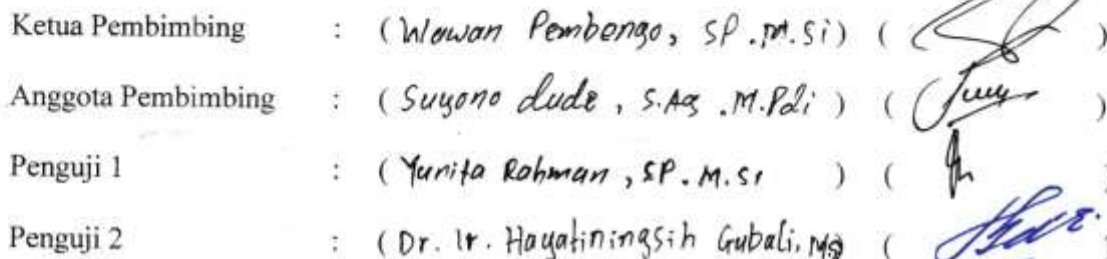 Ketua Pembimbing : (Wawan Pembengo, SP.M.Si) ( )
Anggota Pembimbing : (Suyono dude, S.Ag.M.Pdi) ( )
Penguji 1 : (Yunita Rahman, SP.M.Si ) (
Penguji 2 : (Dr. Ir. Hayatiningsih Gubali, MS (